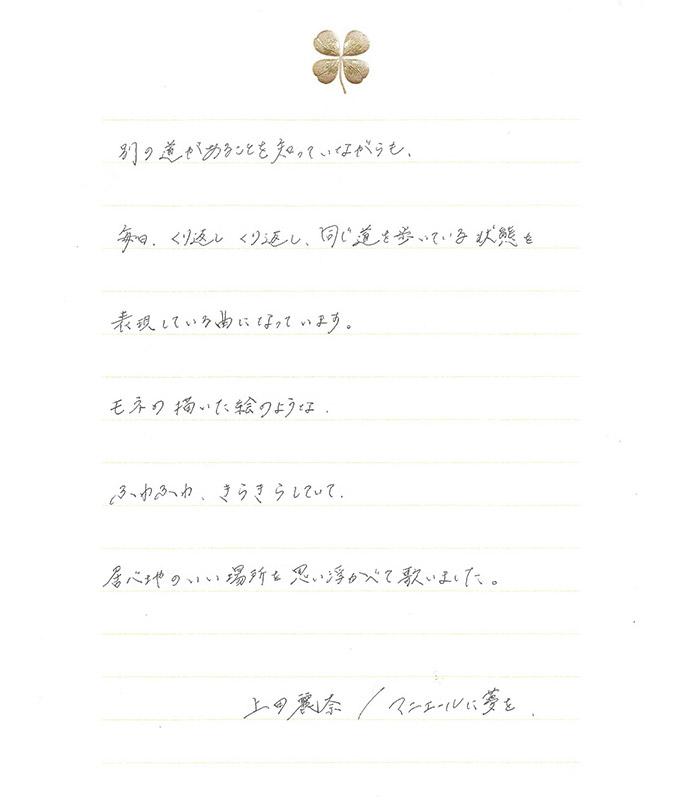 別の道があることを知っていながらも、
毎日、くり返し くり返し、同じ道を歩いている状態を
表現している曲になっています。
モネの描いた絵のような、
ふわふわ、きらきらしていて、
居心地のいい場所を思い浮かべて歌いました。
上田麗奈 / マニエールに夢を、